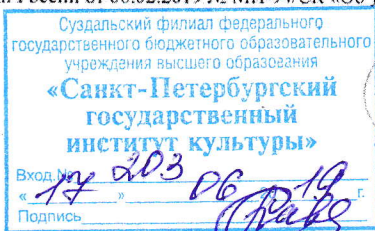 Суздальский филиал федерального
государственного бюджетного образовательного
учреждения высшего образования
«Санкт-Петербургский
государственный
институт культуры»
Вход.№ 203
« 17 » 06 19 г.
Подпись